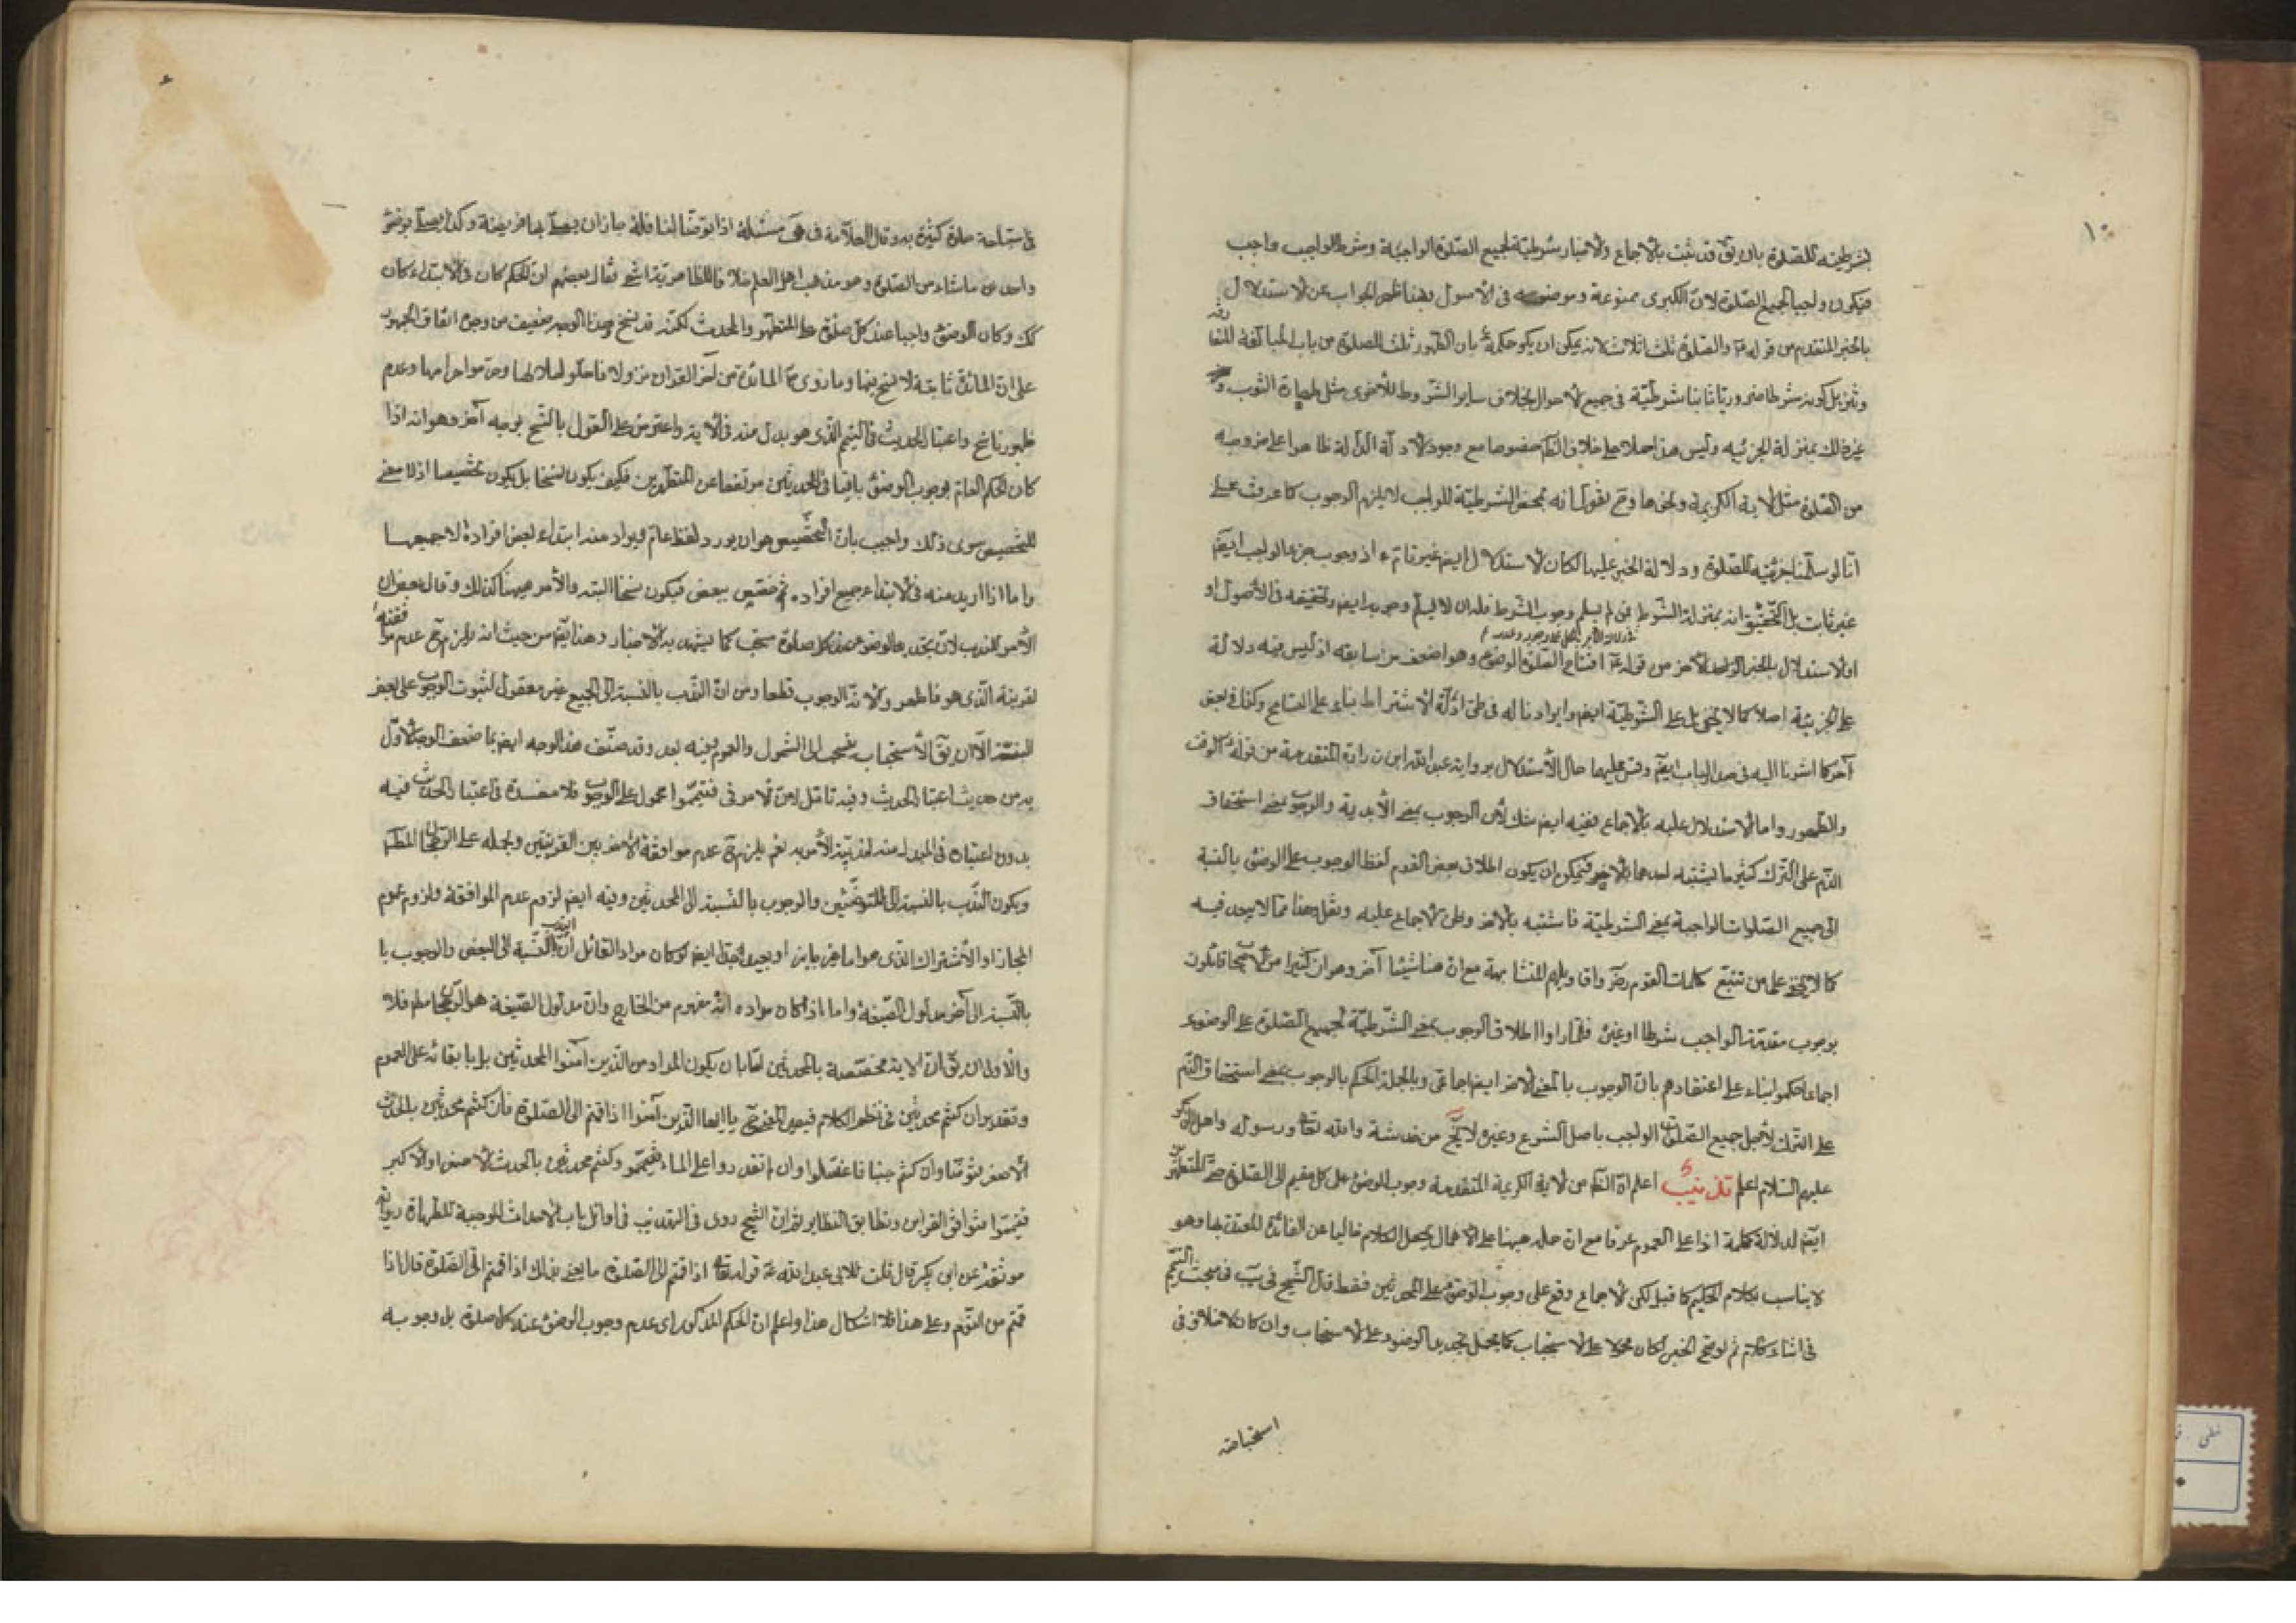 ١٠
بشرطيته للصلوة بان يق قد ثبت بالاجماع والاخبار شرطيته لجميع الصلوة الواجبة وشرط الواجب واجب
فيكون واجبا لجميع الصلوة لان الكبرى ممنوعة وموضعه فى الاصول وبهذا ظهر الجواب عن الاستدلال
بالخبر المتقدم من قوله ع والصلوة ثلث اثلاث لانه يمكن ان يكون حكمه ع بان الطهور ثلث الصلوة من باب المبالغة
وتنزيل كونه شرطا ضروريا ثابتا شرطيته فى جميع الاحوال بخلاف ساير الشروط الاخرى مثل طهارة الثوب و
غير ذلك بمنزلة الجزئية وليس هذا حملا على خلاف الظم خصوصا مع وجود الادلة الدالة ظاهرا على خروجه
من الصلوة مثل الاية الكريمة ونحوها وح نقول انه بمحض الشرطية للواجب لا يلزم الوجوب كما عرفت على
انا لو سلمنا جزئيته للصلوة ودلالة الخبر عليها لكان الاستدلال ايضا غير تام ء اذ وجوب جزء الواجب ايضا
غير ثابت بل التحقيق انه بمنزلة الشرط فمن لم يسلم وجوب الشرط فله ان لا يسلم وجوبه ايضا وتحقيقه فى الاصول او
او الاستدلال بالخبر الاخر من قوله ع افتتاح الصلوة الوضوء وهو اضعف من سابقه اذ ليس فيه دلالة
على الجزئية اصلا كما لا يخفى بل على الشرطية ايضا وايرادنا له فى طى ادلة الاشتراط بناء على التسامح وكذا فى بعض
آخر كما اشرنا اليه فى صدر الباب ايضا وقس عليها حال الاستدلال برواية عبد الله ابن زرارة المتقدمة من قوله ع الوقت
والطهور واما الاستدلال عليه بالاجماع ففيه ايضا شك لان الوجوب بمعنى الابدية والوجوب بمعنى استحقاق
الذم على الترك كثيرا ما يشتبه احدهما بالاخر فيمكن ان يكون اطلاق بعض القوم لفظ الوجوب على الوضوء بالنسبة
الى جميع الصلوات الواجبة بمعنى الشرطية فاشتبه بالاخر وظن الاجماع عليه ومثل هذا مما لا يبعد فيه
كما لا يخفى على من تتبع كلمات القوم واقاويلهم المتشابهة مع ان هنا شيئا آخر وهو ان كثيرا من الاصحاب قايلون
بوجوب مقدمة الواجب شرطا او غيره فلما راوا اطلاق الوجوب بمعنى الشرطية لجميع الصلوة على الوضوء
اجماعا حكموا بناء على اعتقادهم بان الوجوب بالمعنى الاخر ايضا اجماعى وبالجملة الحكم بالوجوب بمعنى استحقاق الذم
على الترك لاجل جميع الصلوات الواجب باصل الشرع وغيره لا يخ من خدشة والله تعا ورسوله واهل الذكر
عليهم السلام اعلم تذنيب اعلم ان الظم من الاية الكريمة المتقدمة وجوب الوضوء على كل مقيم الى الصلوة حتى المتطهرين
ايضا لدلالة كلمة اذا على العموم عرفا مع ان حمله ههنا على الاهمال يجعل الكلام خاليا عن الفائدة المعتدة بها وهو
لا يناسب كلام الحكيم كما قيل لكن الاجماع وقع على وجوب الوضوء على المحدثين فقط قال الشيخ فى يب فى مبحث التيمم
فى اثناء كلام ثم لو صح الخبر لكان محمولا على الاستحباب كما يحمل تجديد الوضوء على الاستحباب وان كان لا خلاف فى
استباحة
فى استباحة صلوة كثيرة به وقال العلامة فى هى مسئلة اذا توضا لنافلة جاز ان يصلى بها فريضة وكذا يصلى بوضوء
واحد ما شاء من الصلوة وهو مذهب اهل العلم خلافا للظاهرية انتهى فقال بعضهم ان الحكم كان فى الابتداء كان
كك وكان الوضوء واجبا عند كل صلوة على المتطهر والمحدث لكنه قد نسخ وهذا الوجه ضعيف من وجوه اتفاق الجمهور
على ان المائدة ثابتة لا نسخ فيها وما روى ع المائدة من آخر القران نزولا فاحلوا حلالها وحرموا حرامها وعدم
ظهور ناسخ واعتبار الحديث فى التيمم الذى هو بدل منه فى الاية واعترض على القول بالنسخ بوجه آخر وهو انه اذا
كان الحكم العام بوجوب الوضوء باقيا فى المحدثين مرتفعا عن المتطهرين فكيف يكون نسخا بل يكون تخصيصا اذ لا معنى
للتخصيص سوى ذلك واجيب بان التخصيص هو ان يورد لفظ عام فيراد منه ابتداء بعض افراده لا جميعها
واما اذا اريد منه فى الابتداء جميع افراده ثم خصص ببعض فيكون نسخا البتة والامر ههنا كذلك وقال بعض ان
الامر للندب لان تجديد الوضوء عند كل صلوة مستحب كما يشهد به الاخبار وهذا ايضا من حيث انه يلزم ح عدم موافقته
لقرينة الذى هو فاطهروا لانه للوجوب قطعا ومن ان الندب بالنسبة الى الجميع غير معقول لثبوت الوجوب على بعض
البتة الا ان يق الاستحباب ينسحب الى الشمول والعموم فيه بعد وقد ضعف هذا الوجه ايضا بما ضعف الوجه الاول
به من حديث اعتبار الحديث وفيه تامل لان الامر فى فتيمموا محمول على الوجوب فلا مفسدة فى اعتبار الحدث فيه
بدون اعتباره فى المبدل منه لندبية الامر به نعم يلزم ح عدم موافقة الامر بين القرينتين وبحمله على الرجحان المطلق
ويكون الندب بالنسبة الى المتوضئين والوجوب بالنسبة الى المحدثين وفيه ايضا لزوم عدم الموافقة ولزوم عموم
المجاز او الاشتراك الذى هو اما غير جايز او بعيد جدا ايضا لو كان مراد القائل ان الندب بالنسبة الى البعض والوجوب با
بالنسبة الى آخر مدلول الصيغة واما اذا كان مراده انه مفهوم من الخارج وان مدلول الصيغة هو الرجحان المطلق فلا
والاولى ان يق ان الاية مختصة بالمحدثين اما بان يكون المراد من الذين آمنوا المحدثين او بابقائه على العموم
وتقدير ان كنتم محدثين فى نظم الكلام فيصير المعنى ح يا ايها الذين آمنوا اذا قمتم الى الصلوة فان كنتم محدثين بالحدث
الاصغر فتوضئوا وان كنتم جنبا فاغتسلوا وان لم تقدروا على الماء فتيمموا وكنتم محدثين بالحدث الاصغر او الاكبر
فتيمموا فتوافق القراين وتطابق النظاير ثم ان الشيخ روى فى التهذيب فى اوائل باب الاحداث الموجبة للطهارة رواية
موثقة عن ابن بكير قال قلت لابى عبد الله ع قوله تعا اذا قمتم الى الصلوة ما يعنى بذلك اذا قمتم الى الصلوة قال اذا
قمتم من النوم وعلى هذا فلا اشكال هذا واعلم ان الحكم المذكور اى عدم وجوب الوضوء عند كل صلوة بل وجوبه